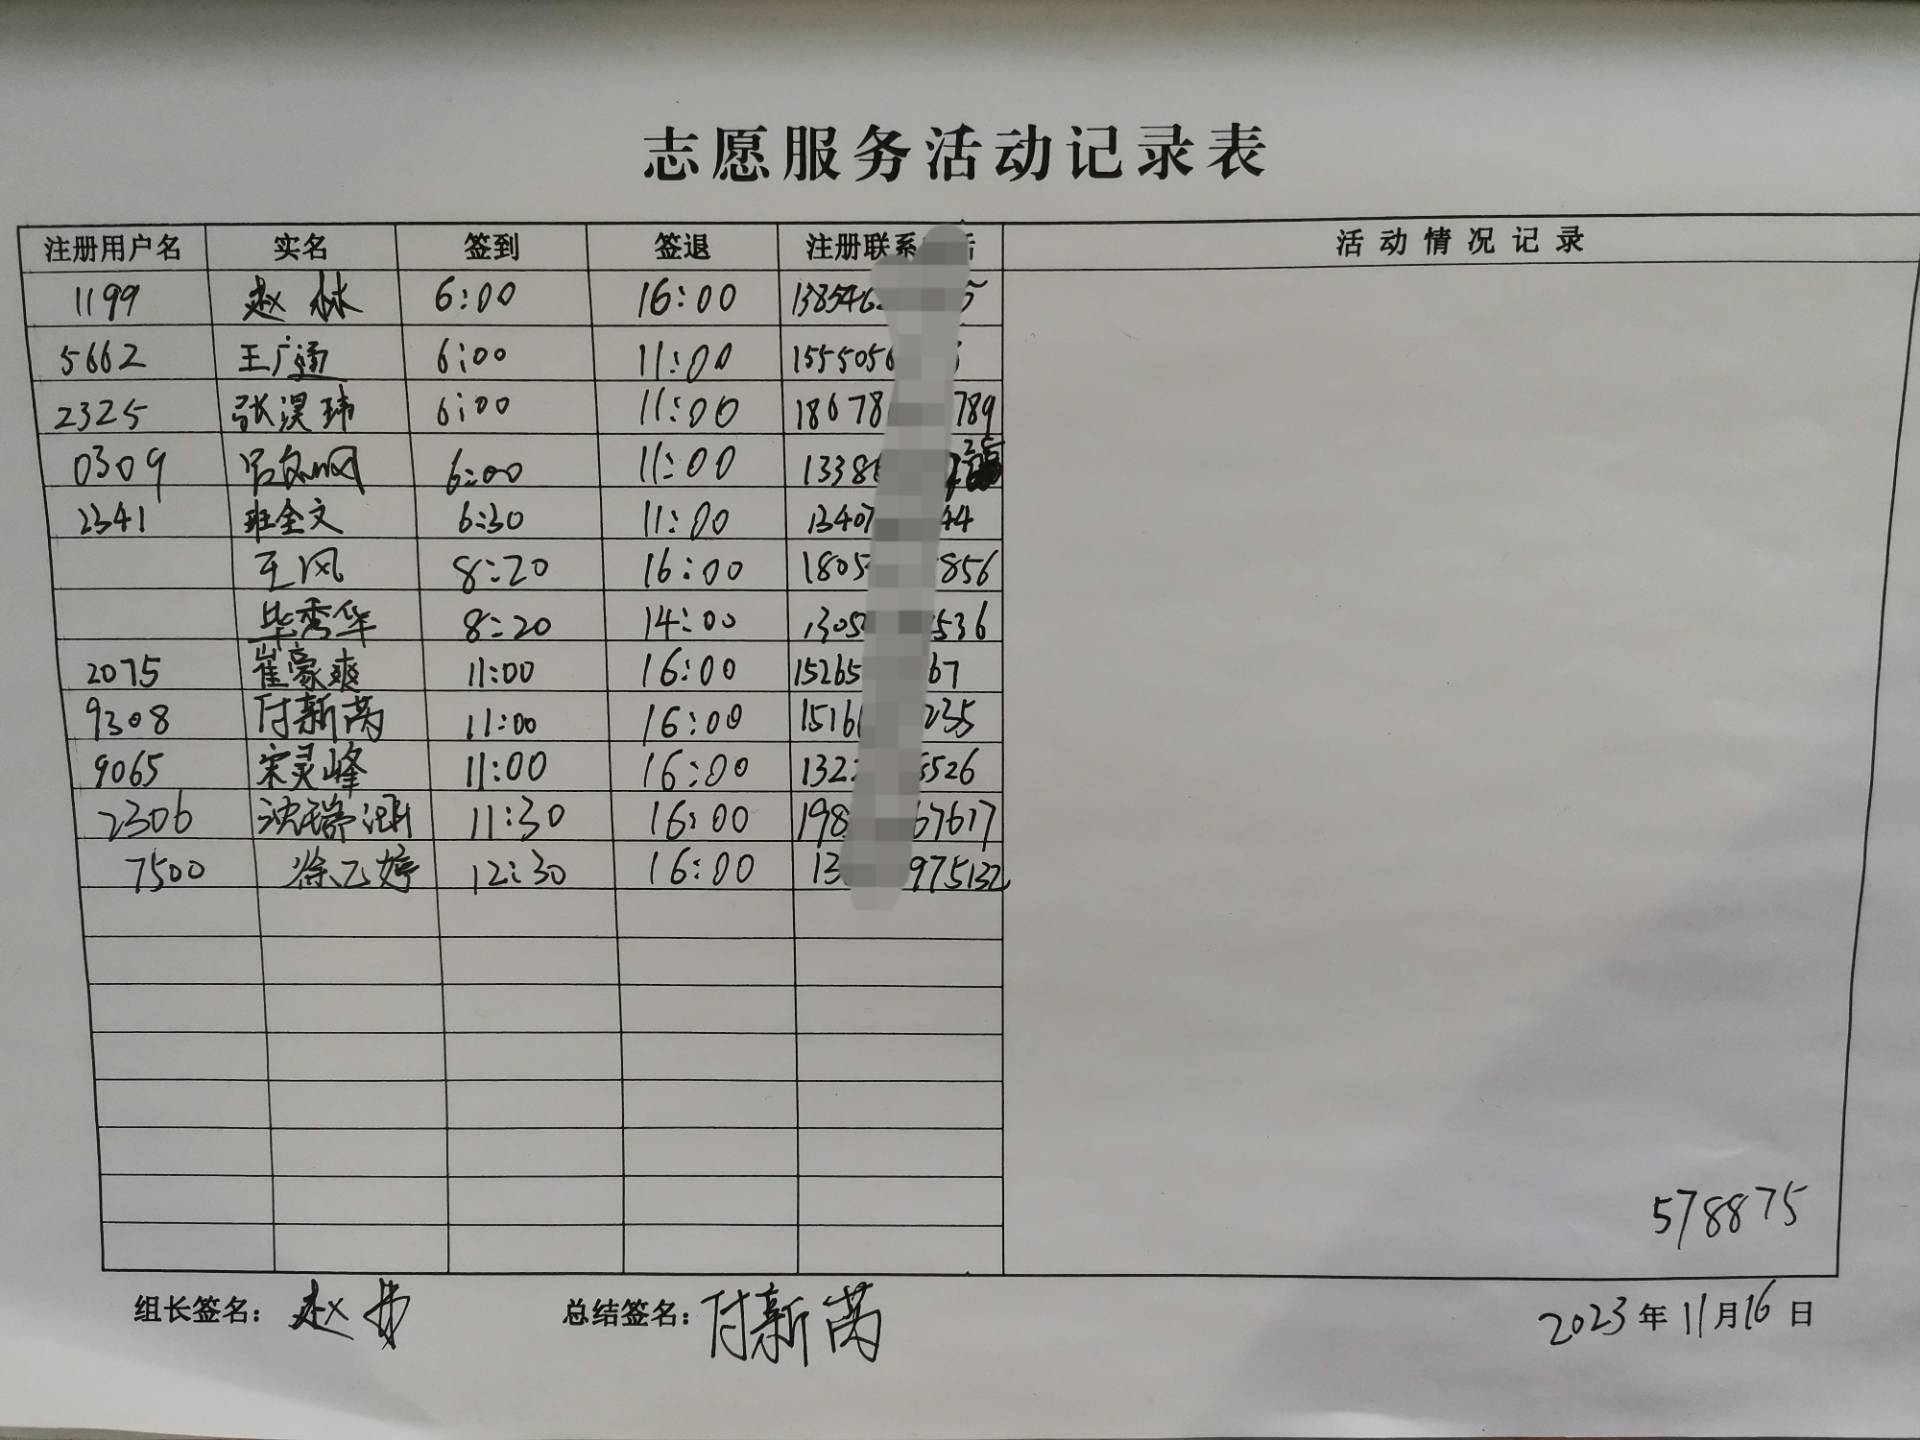 志愿服务活动记录表
注册用户名 实名 签到 签退 注册联系 活动情况记录
1199 赵林 6:00 16:00 138546
5662 王广通 6:00 11:00 1555056
2325 张淏玮 6:00 11:00 18678 789
0309 6:00 11:00 1338
2341 班全文 6:30 11:00 13407 44
王风 8:20 16:00 1805 856
毕秀华 8:20 14:00 1305 536
2075 崔豪爽 11:00 16:00 15265 67
9308 付新苪 11:00 16:00 1516 235
9065 宋灵峰 11:00 16:00 132 526
2306 沈瑞涵 11:30 16:00 198 67617
7500 徐乙婷 12:30 16:00 13 975132
578875
组长签名: 赵 总结签名: 付新苪 2023年11月16日